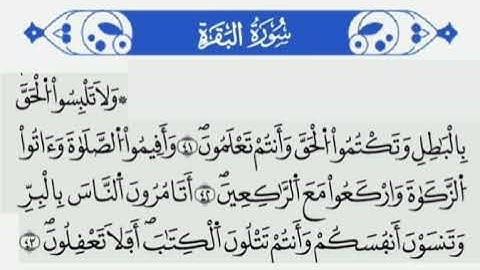 سُورَةُ الْبَقَرَةِ
* وَلَا تَلْبِسُوا۟ اُ۬لْحَقَّ
بِالْبَٰطِلِ وَتَكْتُمُوا۟ اُ۬لْحَقَّ وَأَنتُمْ تَعْلَمُونَۖ ٤١ وَأَقِيمُوا۟ اُ۬لصَّلَوٰةَ وَءَاتُوا۟
اُ۬لزَّكَوٰةَ وَارْكَعُوا۟ مَعَ اَ۬لرَّٰكِعِينَۖ ٤٢ أَتَامُرُونَ اَ۬لنَّاسَ بِالْبِرِّ
وَتَنسَوْنَ أَنفُسَكُمْ وَأَنتُمْ تَتْلُونَ اَ۬لْكِتَٰبَۖ أَفَلَا تَعْقِلُونَۖ ٤٣